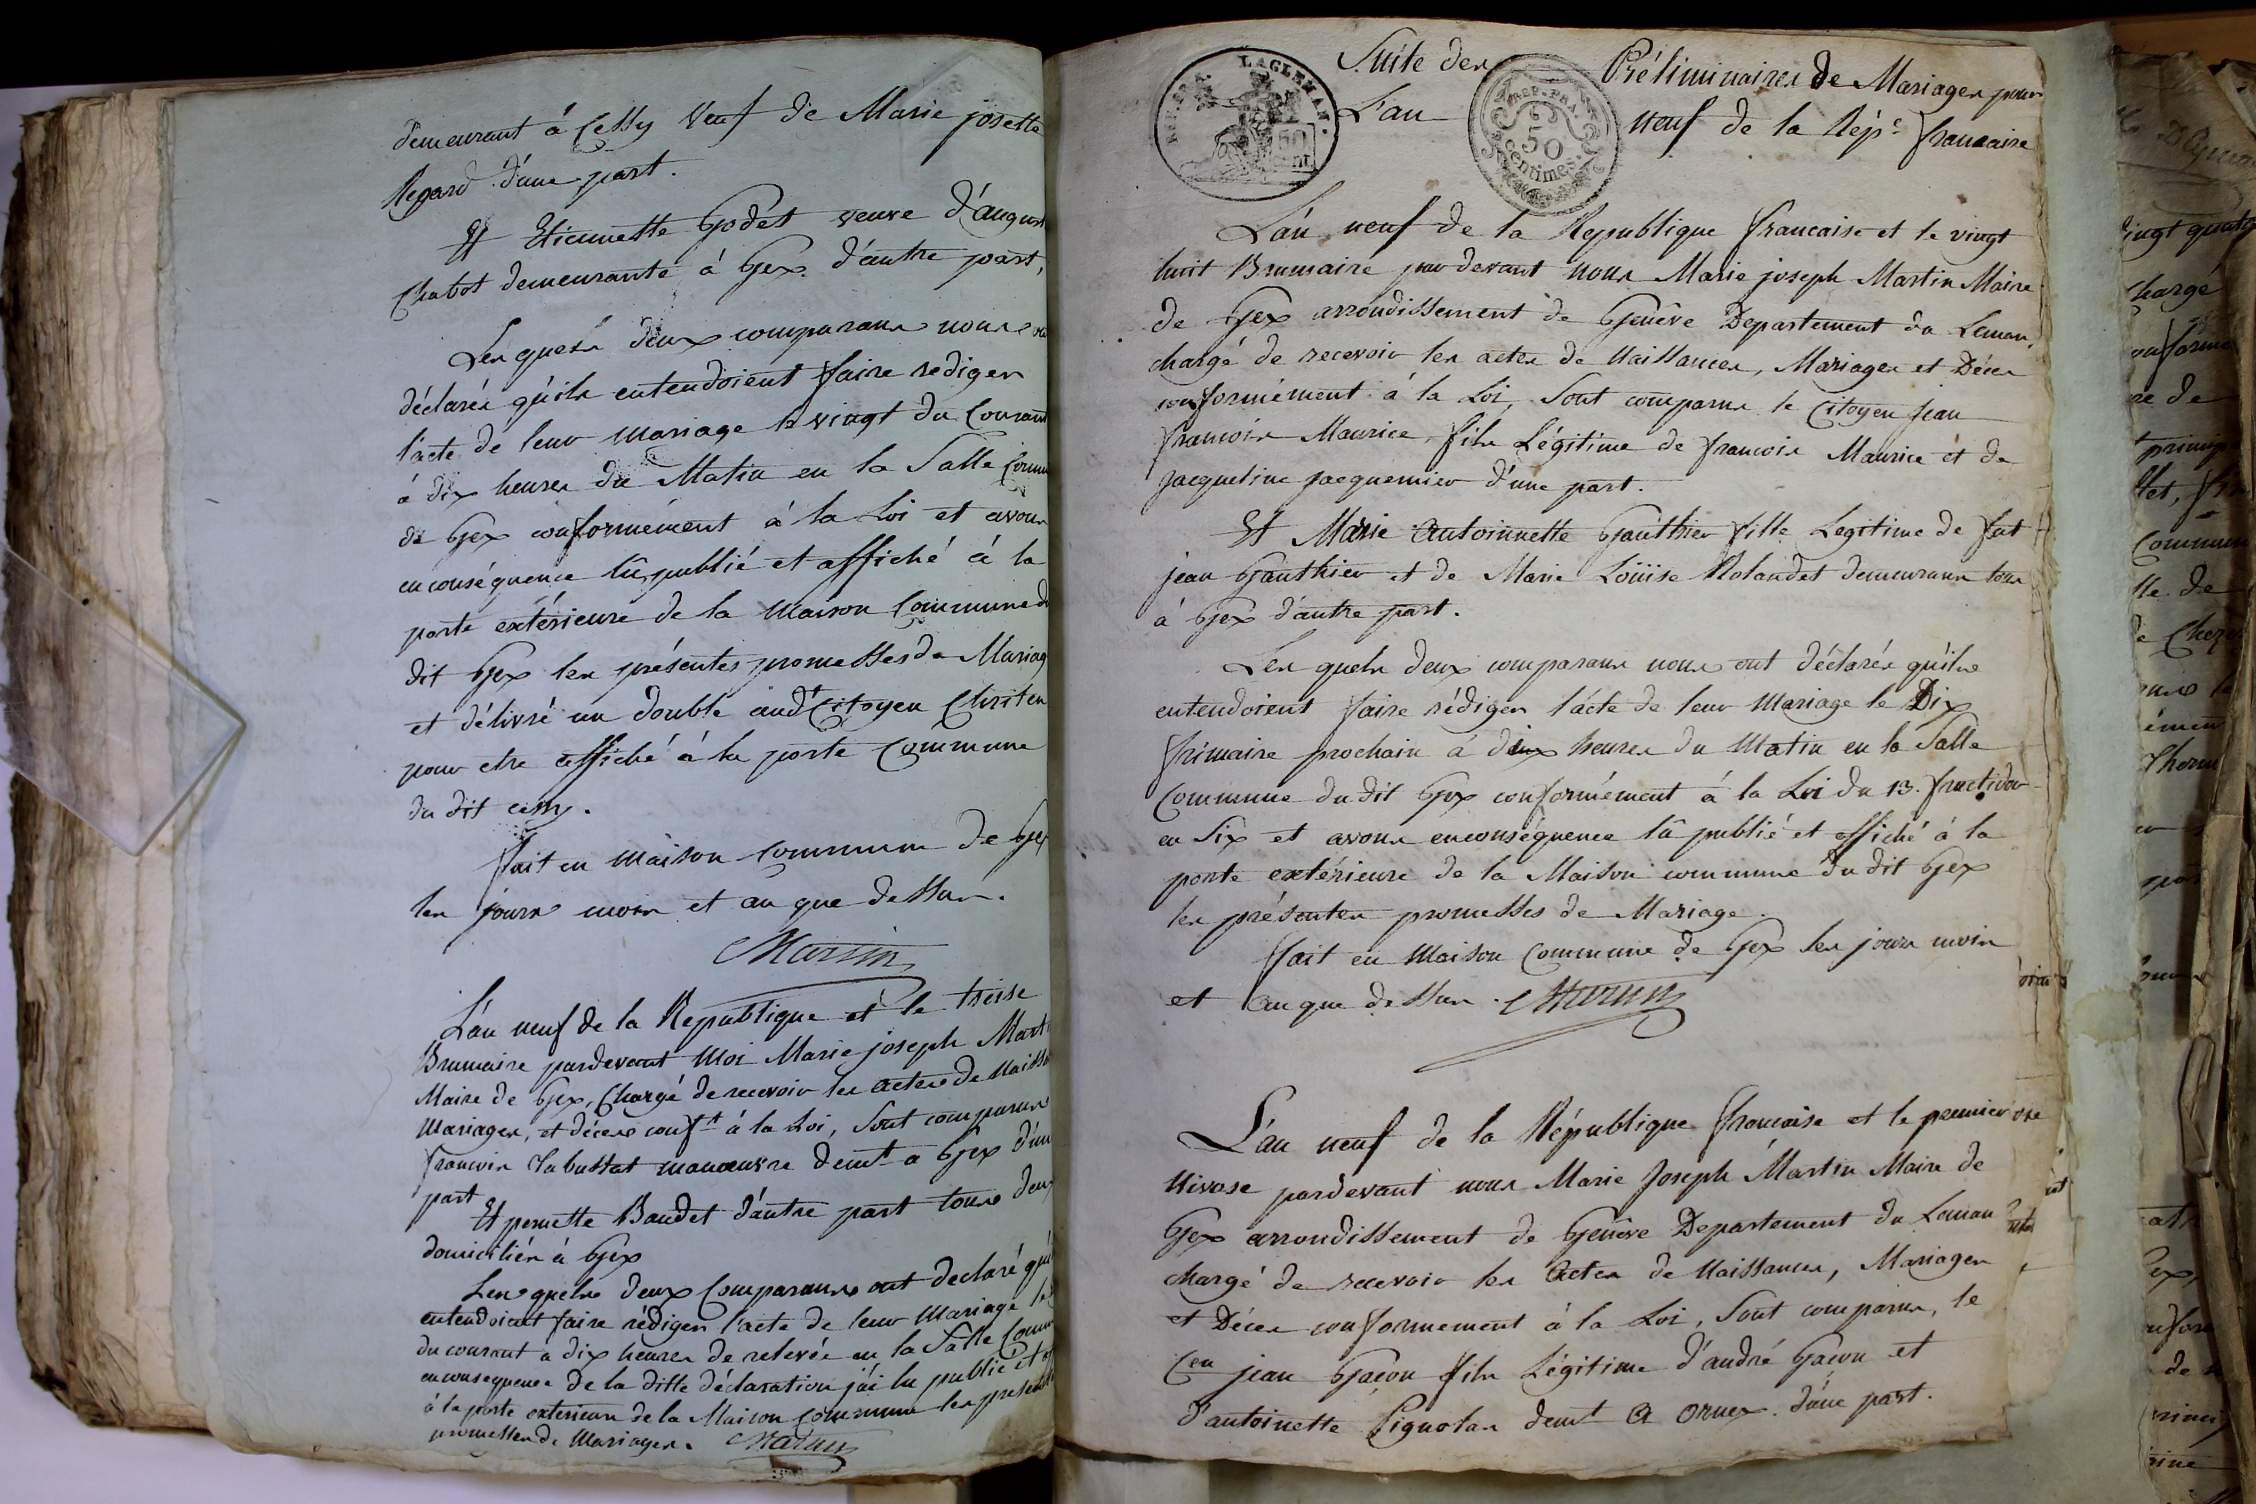 demeurant à Cessy Veuf de Marie josette
Regard d'une part.
Et Etiennette Godet veuve d'august
Chabot demeurante à Gex d'autre part,
Les quels deux comparans nous
déclarés qu'ils entendoient faire rediger
l'acte de leur mariage le vingt du Courant
à dix heures du Matin en la Salle Commu
de Gex conformément à la Loi et avons
en conséquence lû, publié et affiché à la
porte extérieure de la maison Commune du
dit Gex les présentes promesses de Mariag
et délivré un double aud.t Citoyen
pour etre affiché à la porte Commune
du dit cessy.
fait en maison commune de Gex
les jours mois et an que dessus.
Martin
L'an neuf de la Republique et le treise
Brumaire pardevant moi Marie joseph Mart
Maire de Gex, Chargé de recevoir les actes de Naissa
Mariages, et décès conf.t à la Loi, Sont comparus
francois manœuvre demt a Gex d'une
part
Et pernette Baudet d'autre part tous deux
domiciliés à Gex
Les quels deux Comparans ont declaré qu'i
entendoient faire rédiger l'acte de leur mariage le
du courant a dix heures de relevée en la Salle Comm
en consequence de la ditte déclaration j'ai lu publié et
à la porte exterieure de la Maison commune les present
promesses de Mariages. Martin
REP. FRA. LAGLEMAN.
50 cent.
Suite des Préliminaires de Mariages pour
REP. FRA.
50
centimes.
L'an neuf de la Rép.e francaise
L'an neuf de la Republique francaise et le vingt
huit Brumaire par devant nous Marie joseph Martin Maire
de Gex arrondissement de Genêve Departement du Leman,
chargé de recevoir les actes de Naissances, Mariages et Décès
conformément à la Loi, Sont comparus le Citoyen jean
francois Maurice, fils Légitime de francois Maurice et de
Jacqueline Jacquemier d'une part.
Et Marie Antoinnette Gauthier fille Legitime de fut
jean Gauthier et de Marie Loüise Rolandet demeurans tous
à Gex d'autre part.
Les quels deux comparans nous ont déclarés qu'ils
entendoient faire rédiger l'acte de leur Mariage le Dix
frimaire prochain à dix heures du Matin en la Salle
Commune du dit Gex conformément à la Loi du 13. fructidor
en Six et avons en conséquence lû publié et affiché à la
porte extérieure de la Maison commune du dit Gex
les présentes promesses de Mariage.
fait en Maison Commune de Gex les jours mois
et an que dessus. Martin
L'an neuf de la République francaise et le premier
Nivose pardevant nous Marie Joseph Martin Maire de
Gex arrondissement de Genêve Departement du Leman
chargé de recevoir les Actes de Naissances, Mariages
et Décès conformement à la Loi, Sont comparus, le
C.en jean Gacon fils Légitime d'andré Gacon et
d'antoinette Pignolas demt a Ornex d'une part.